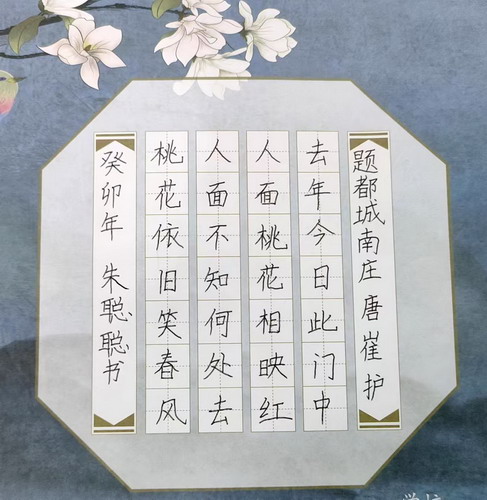 题都城南庄 唐 崔护
去年今日此门中
人面桃花相映红
人面不知何处去
桃花依旧笑春风
癸卯年 朱聪聪书